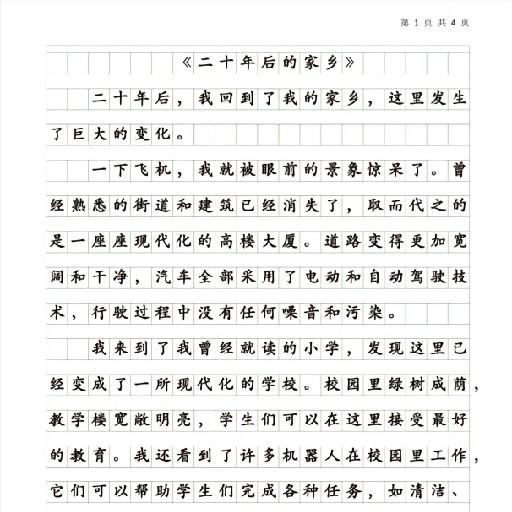 第 1 页 共 4 页
《二十年后的家乡》
二十年后，我回到了我的家乡，这里发生
了巨大的变化。
一下飞机，我就被眼前的景象惊呆了。曾
经熟悉的街道和建筑已经消失了，取而代之的
是一座座现代化的高楼大厦。道路变得更加宽
阔和干净，汽车全部采用了电动和自动驾驶技
术，行驶过程中没有任何噪音和污染。
我来到了我曾经就读的小学，发现这里已
经变成了一所现代化的学校。校园里绿树成荫，
教学楼宽敞明亮，学生们可以在这里接受最好
的教育。我还看到了许多机器人在校园里工作，
它们可以帮助学生们完成各种任务，如清洁、